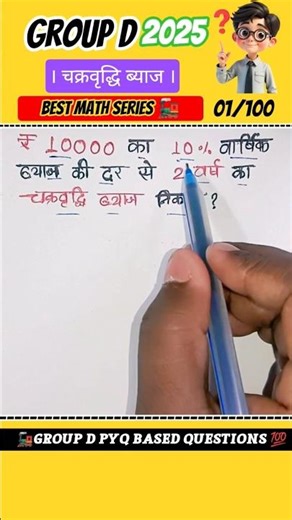 GROUP D 2025❓
। चक्रवृद्धि ब्याज ।
BEST MATH SERIES 🚂 01/100
₹ 10000 का 10% वार्षिक
ब्याज की दर से 2 वर्ष का
चक्रवृद्धि ब्याज ?
🚂GROUP D PYQ BASED QUESTIONS 💯